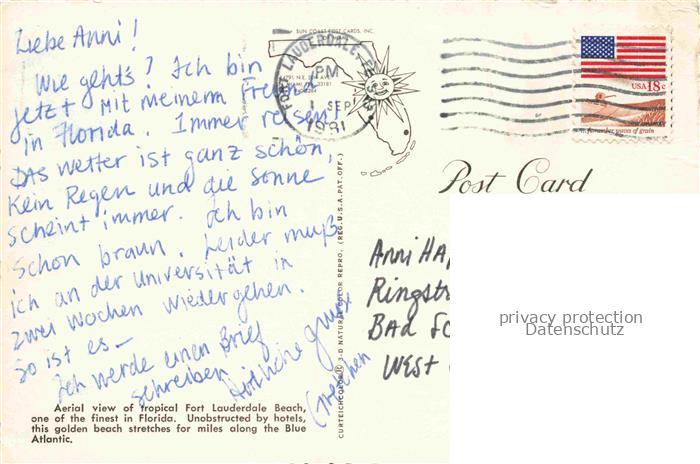 Liebe Anni!
Wie geht's? Ich bin
jetzt mit meinem Freund
in Florida. Immer reisen!
Das Wetter ist ganz schön,
Kein Regen und die Sonne
scheint immer. Ich bin
schon braun. Leider muß
ich an der Universität in
zwei Wochen wiedergehen.
So ist es—
Ich werde einen Brief
schreiben.
Herzliche Grüße
Gretchen
Aerial view of tropical Fort Lauderdale Beach,
one of the finest in Florida. Unobstructed by hotels,
this golden beach stretches for miles along the Blue
Atlantic.
SUN COAST POST CARDS, INC.
FORT LAUDERDALE, FL
PM
1 SEP
1981
CURTEICHCOLOR® 3-D NATURAL COLOR REPRO. (REG. U.S.A. PAT. OFF.)
USA 18c
Post Card
Anni
Ringstr
Bad
West
privacy protection
Datenschutz